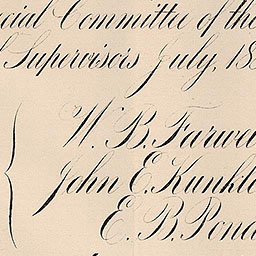 cial Committee of the
Supervisors July, 18
W. B. Farwe
John E. Kunkl
E. B. Pon